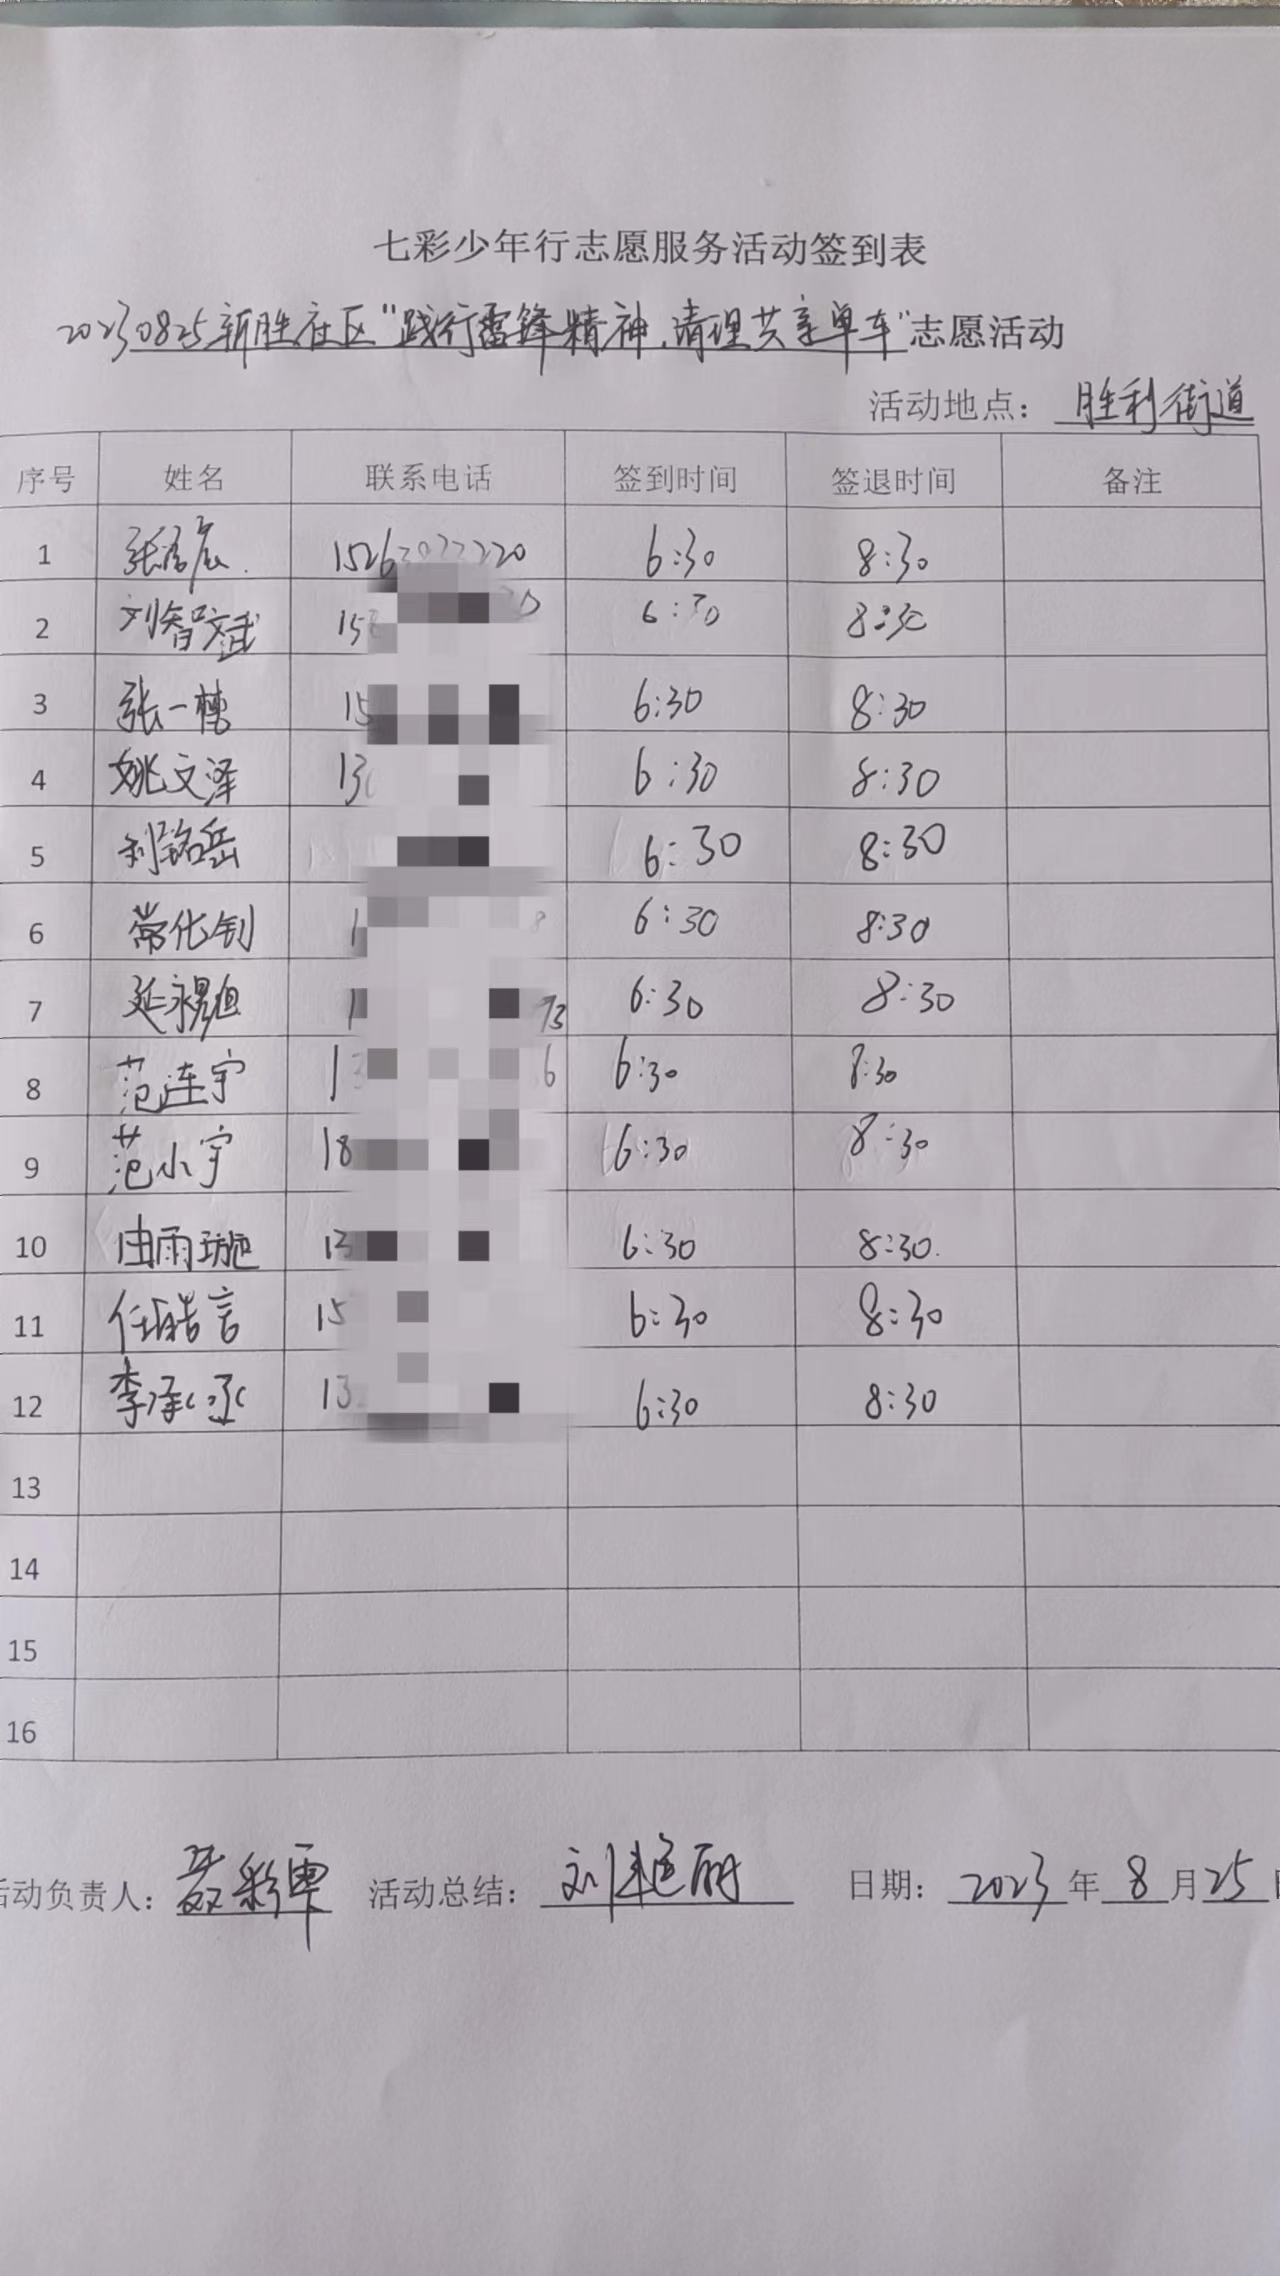 七彩少年行志愿服务活动签到表
20230825新胜社区"践行雷锋精神,清理共享单车"志愿活动
活动地点: 胜利街道
序号 姓名 联系电话 签到时间 签退时间 备注
1 6:30 8:30
2 刘智斌 15 6:30 8:30
3 张一 15 6:30 8:30
4 姚文泽 13 6:30 8:30
5 刘铭岳 6:30 8:30
6 常化钊 1 8 6:30 8:30
7 延 1 73 6:30 8:30
8 范连宇 13 6 6:30 8:30
9 范小宇 18 6:30 8:30
10 由雨璇 13 6:30 8:30.
11 任皓言 15 6:30 8:30
12 李泽丞 13 6:30 8:30
13
14
15
16
活动负责人: 彩霞 活动总结: 刘艳丽 日期: 2023年8月25日